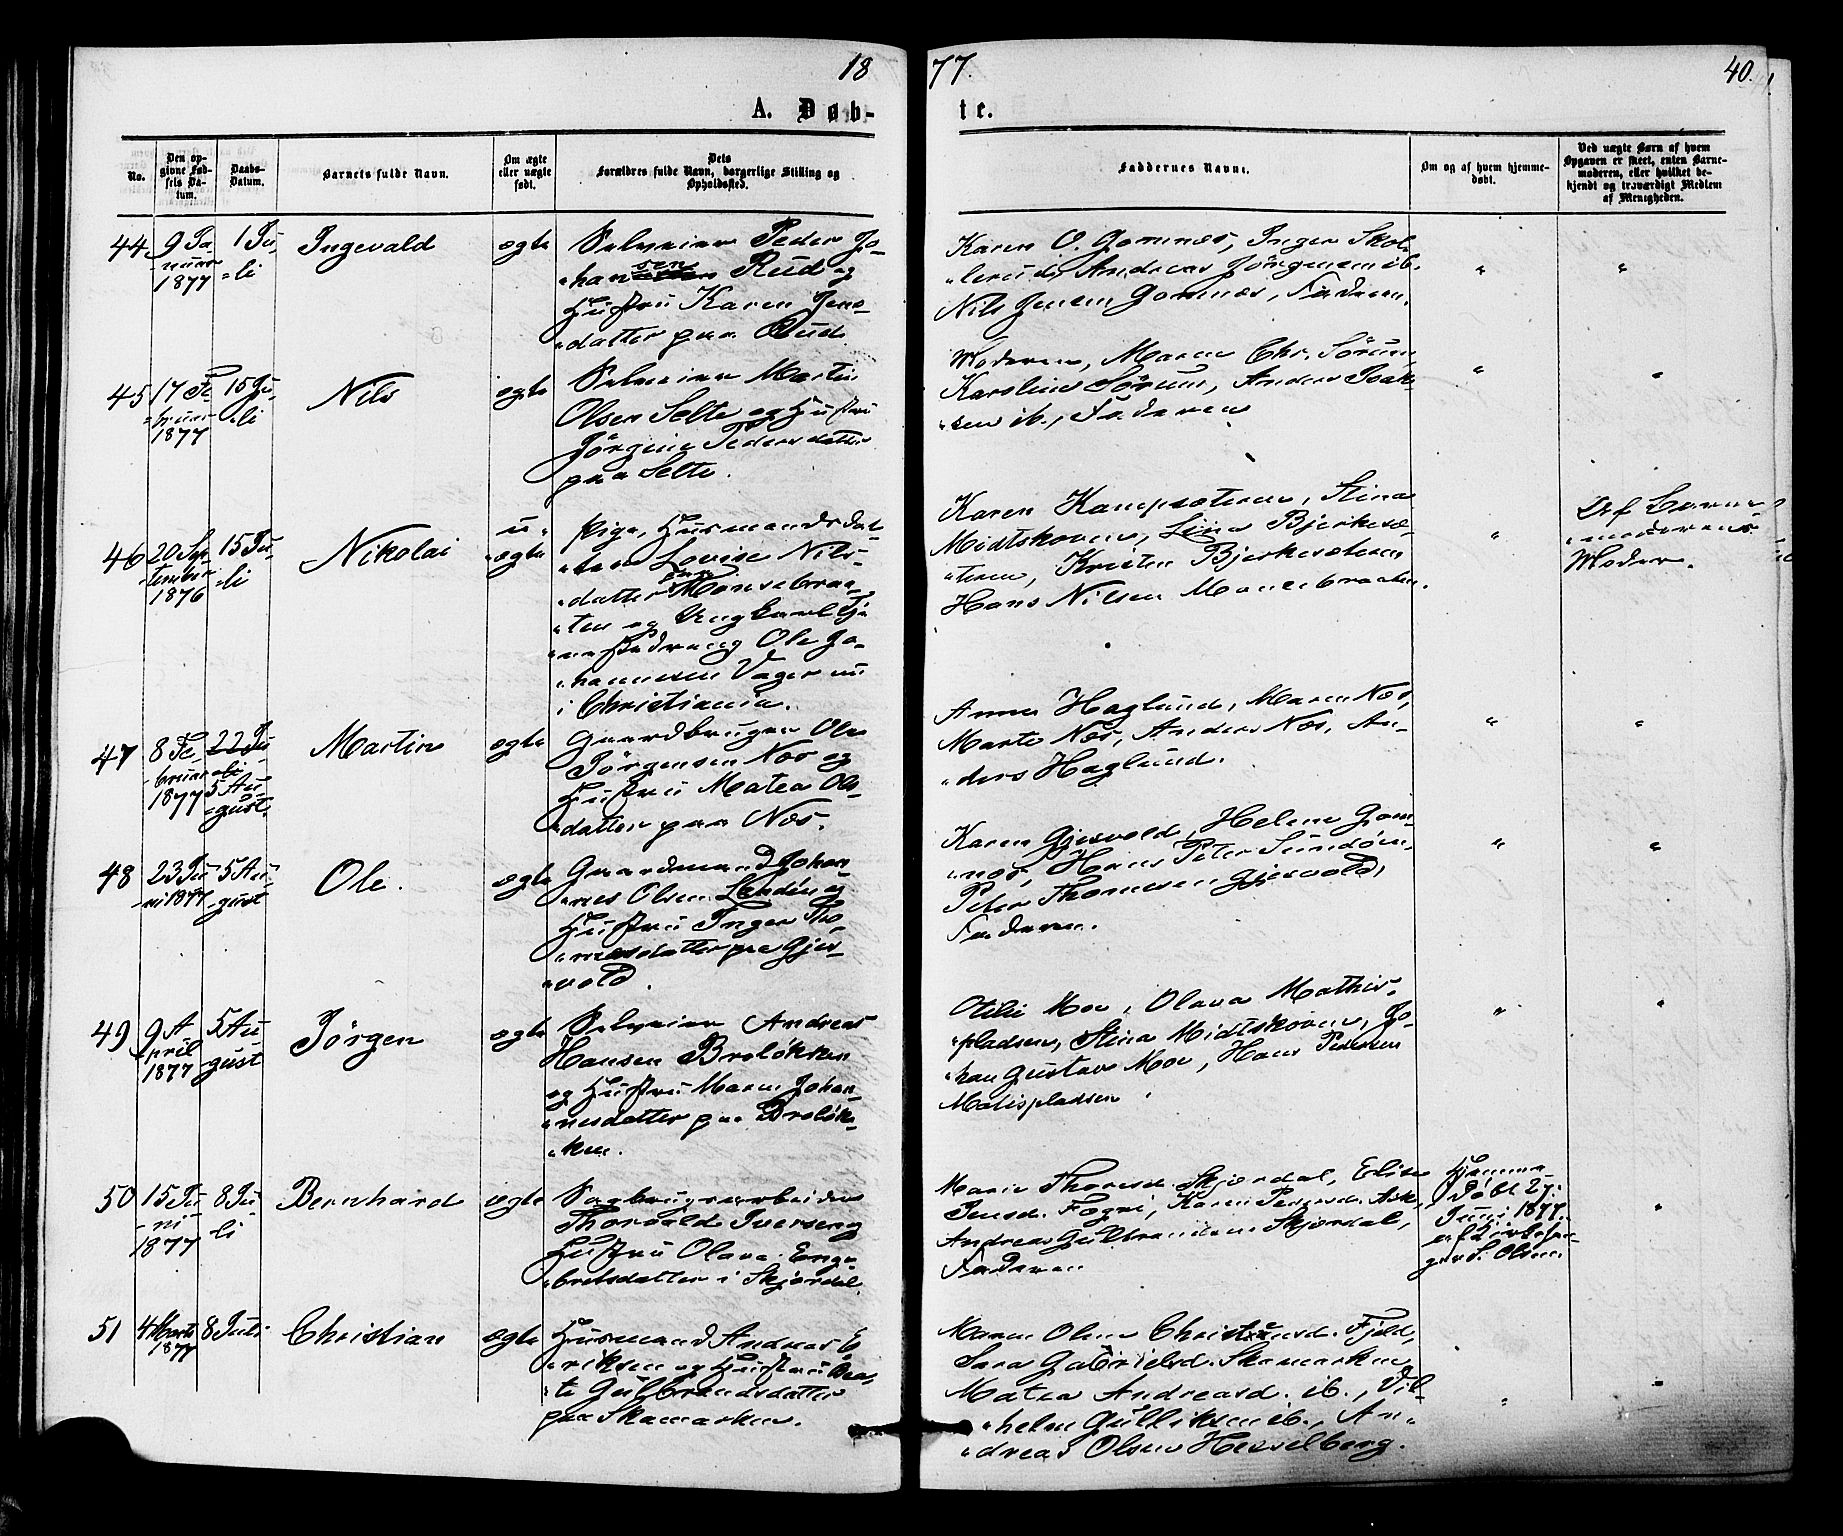 18
77.
40.
A. Døb-
te.
No.
Den op-
givne Fød-
sels Da-
tum.
Daabs-
Datum.
Barnets fulde Navn.
Om ægte
eller uægte
født.
Dets
Forældres fulde Navn, borgerlige Stilling og
Opholdssted.
Faddernes Navne.
Om og af hvem hjemme-
døbt.
Ved uægte Børn af hvem
Opgaven er skeet, enten Barne-
moderen, eller hvilket be-
kjendt og troværdigt Medlem
af Menigheden.
44
9 Ja
-nuar
1877
1 Ju-
-li
Ingevald
ægte
Selveier Peder Jo-
-hansen Rud og
Hustru Karen Jens-
-datter paa Rud
Karen O. Gomnæs, Inger Skol-
-lerud, Andreas Jörgensen ib.
Nils Jensen Gomnæs, Faderen.
"
"
45
17 Fe-
-bruar
1877
15 Ju-
-li
Nils
ægte
Selveier Martin
Olsen Selte og Hustru
Jörgine Pedersdatter
paa Selte.
Moderen, Maren Chr. Sörum,
Karoline Sörum, Anders Isak-
-sen ib., Faderen
"
"
46
20 Sep-
-tember
1876
15 Ju-
-li
Nikolai
u-
-ægte
Pige, Husmandsdat-
-ter Lovise Nils-
-datter Monsebraa-
-ten og Ungkarl Tje-
-nestedreng Ole Jo-
-hannesen Vager nu
i Christiania.
Karen Kampesæteren, Stina
Midtskoven, Lina Bjerkesæ-
-teren, Kristen Bjerkesæteren
Hans Nilsen Monsebraaten.
"
Af Barne-
-moderens
Moder.
47
8 Fe-
-bruar
1877
22 Ju-
-li
5 Au-
-gust.
Martin
ægte
Gaardbruger Ole
Jörgensen Næs og
Hustru Matea Ols-
-datter paa Næs.
Anne Haglund, Maren Næs,
Marte Næs, Anders Næs, An-
-ders Haglund.
"
"
48
23 Ju-
-ni 1877
5 Au-
-gust
Ole.
ægte
Gaardmand Johan-
-nes Olsen og
Hustru Inger Tho-
-mesdatter paa Gjes-
-vold.
Karen Gjesvold, Helene Gom-
-næs, Hans Peter Sundöen,
Peter Thomesen Gjesvold,
Faderen.
"
"
49
9 A-
-pril
1877
5 Au-
-gust
Jörgen
ægte
Selveier Andreas
Hansen Brolökken
og Hustru Maren Johan-
-nesdatter paa Brolök-
-ken.
Otilie Moe, Olava Mathis-
-pladsen, Stina Midtskoven, Jo-
-han Gustav Moe, Hans Pedersen
Matispladsen.
"
"
50
15 Ju-
-ni
1877
8 Ju-
-li
Bernhard
ægte
Sagbrugsarbeider
Thorvald Iversen og
Hustru Olava Enge-
-bretsdatter i Skjørdal.
Marie Thoresd. Skjørdal, Elise
Jensd. Fogni, Karen Pedersd. Ask,
Andreas Gulbrandsen Skjørdal,
Faderen
Hjemme-
-döbt 27.
Juni 1877.
S. Olsen.
"
51
4 Marts
1877
8 Juli
Christian
ægte
Husmand Andreas E-
-riksen og Hustru Bea-
-te Gulbrandsdatter
paa Skamarken.
Maren Oline Christiansd. Fjeld,
Sara Gabrielsd. Skamarken
Matea Andreasd. ib., Vil-
-helm Gulliksen ib., An-
-dreas Olsen Hesselberg.
"
"